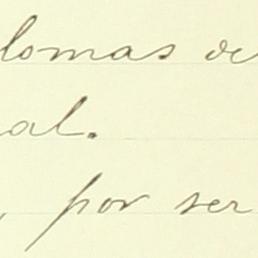 lomas de
al.
, por ser